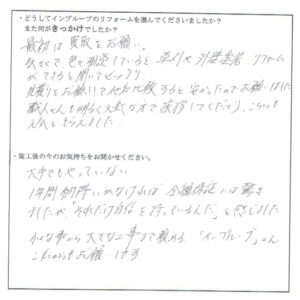 ・どうしてインプルーブのリフォームを選んでくださいましたか？
また何がきっかけでしたか？
最初は買取をお願い。
色々相談していると、草刈や外壁塗装、リフォーム
ができると聞いてビックリ
見積りをお願いして他社比較すると安かったのでお願いしました
職人さんも明るく元気な方で挨拶してくださり、こちらも
元気もらえました。
・施工後の今のお気持ちをお聞かせください。
大手でもやっていない
1年間納得いかなければ全額保証には驚き
ましたが「それだけ自信を持っているんだ」と感じました
小さな事から大きな工事まで頼める「インプルーブ」さん
これからもお願いします